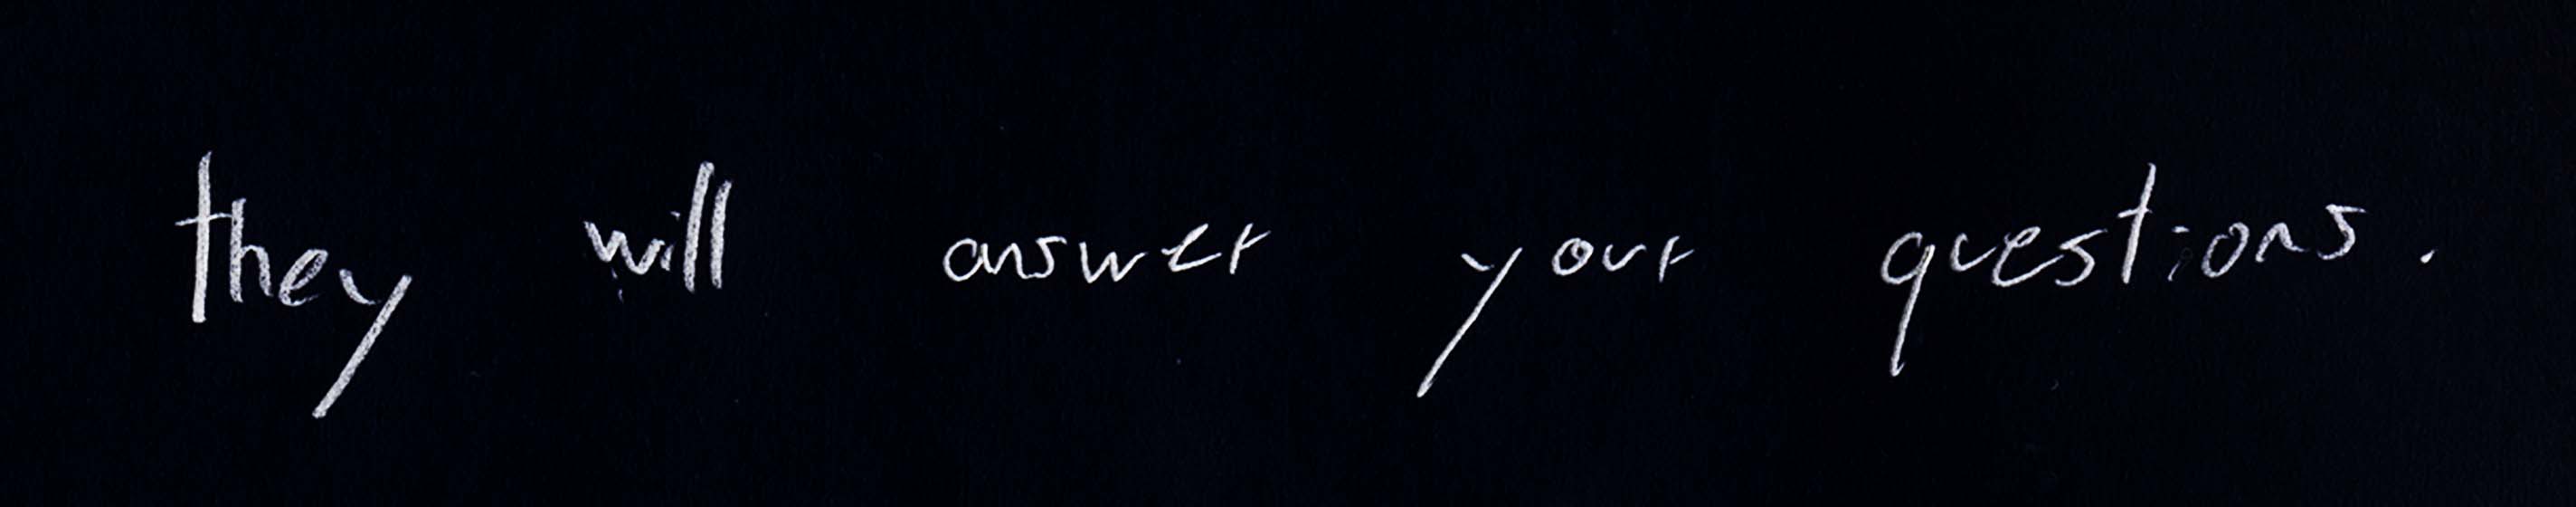 they will answer your questions.